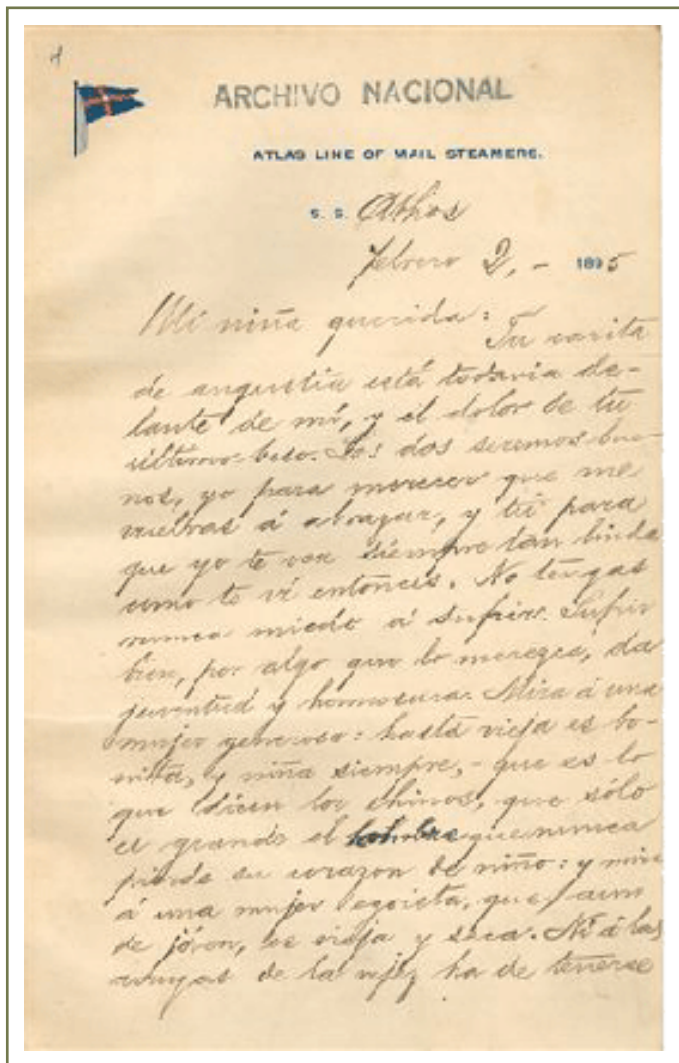 ARCHIVO NACIONAL
ATLAS LINE OF MAIL STEAMERS.
S. S. Athos
febrero 2, - 1895
Mi niña querida:
Tu carita
de angustia está todavia de-
lante de mí, y el dolor de tu
último beso. Los dos seremos bue-
nos, yo para merecer que me
vuelvas á abrazar, y tú para
que yo te vea siempre tan linda
como te vi entonces. No tengas
nunca miedo á sufrir. Sufrir
bien, por algo que lo merezca, da
juventud y hermosura. Mira á una
mujer generosa: hasta vieja es bo-
nita, y niña siempre, - que es lo
que dicen los chinos, que sólo
es grande el hombre que nunca
pierde su corazon de niño: y mira
á una mujer egoista, que, aun
de jóven, es vieja y seca. Ni á las
arrugas de la vejez ha de tenerse